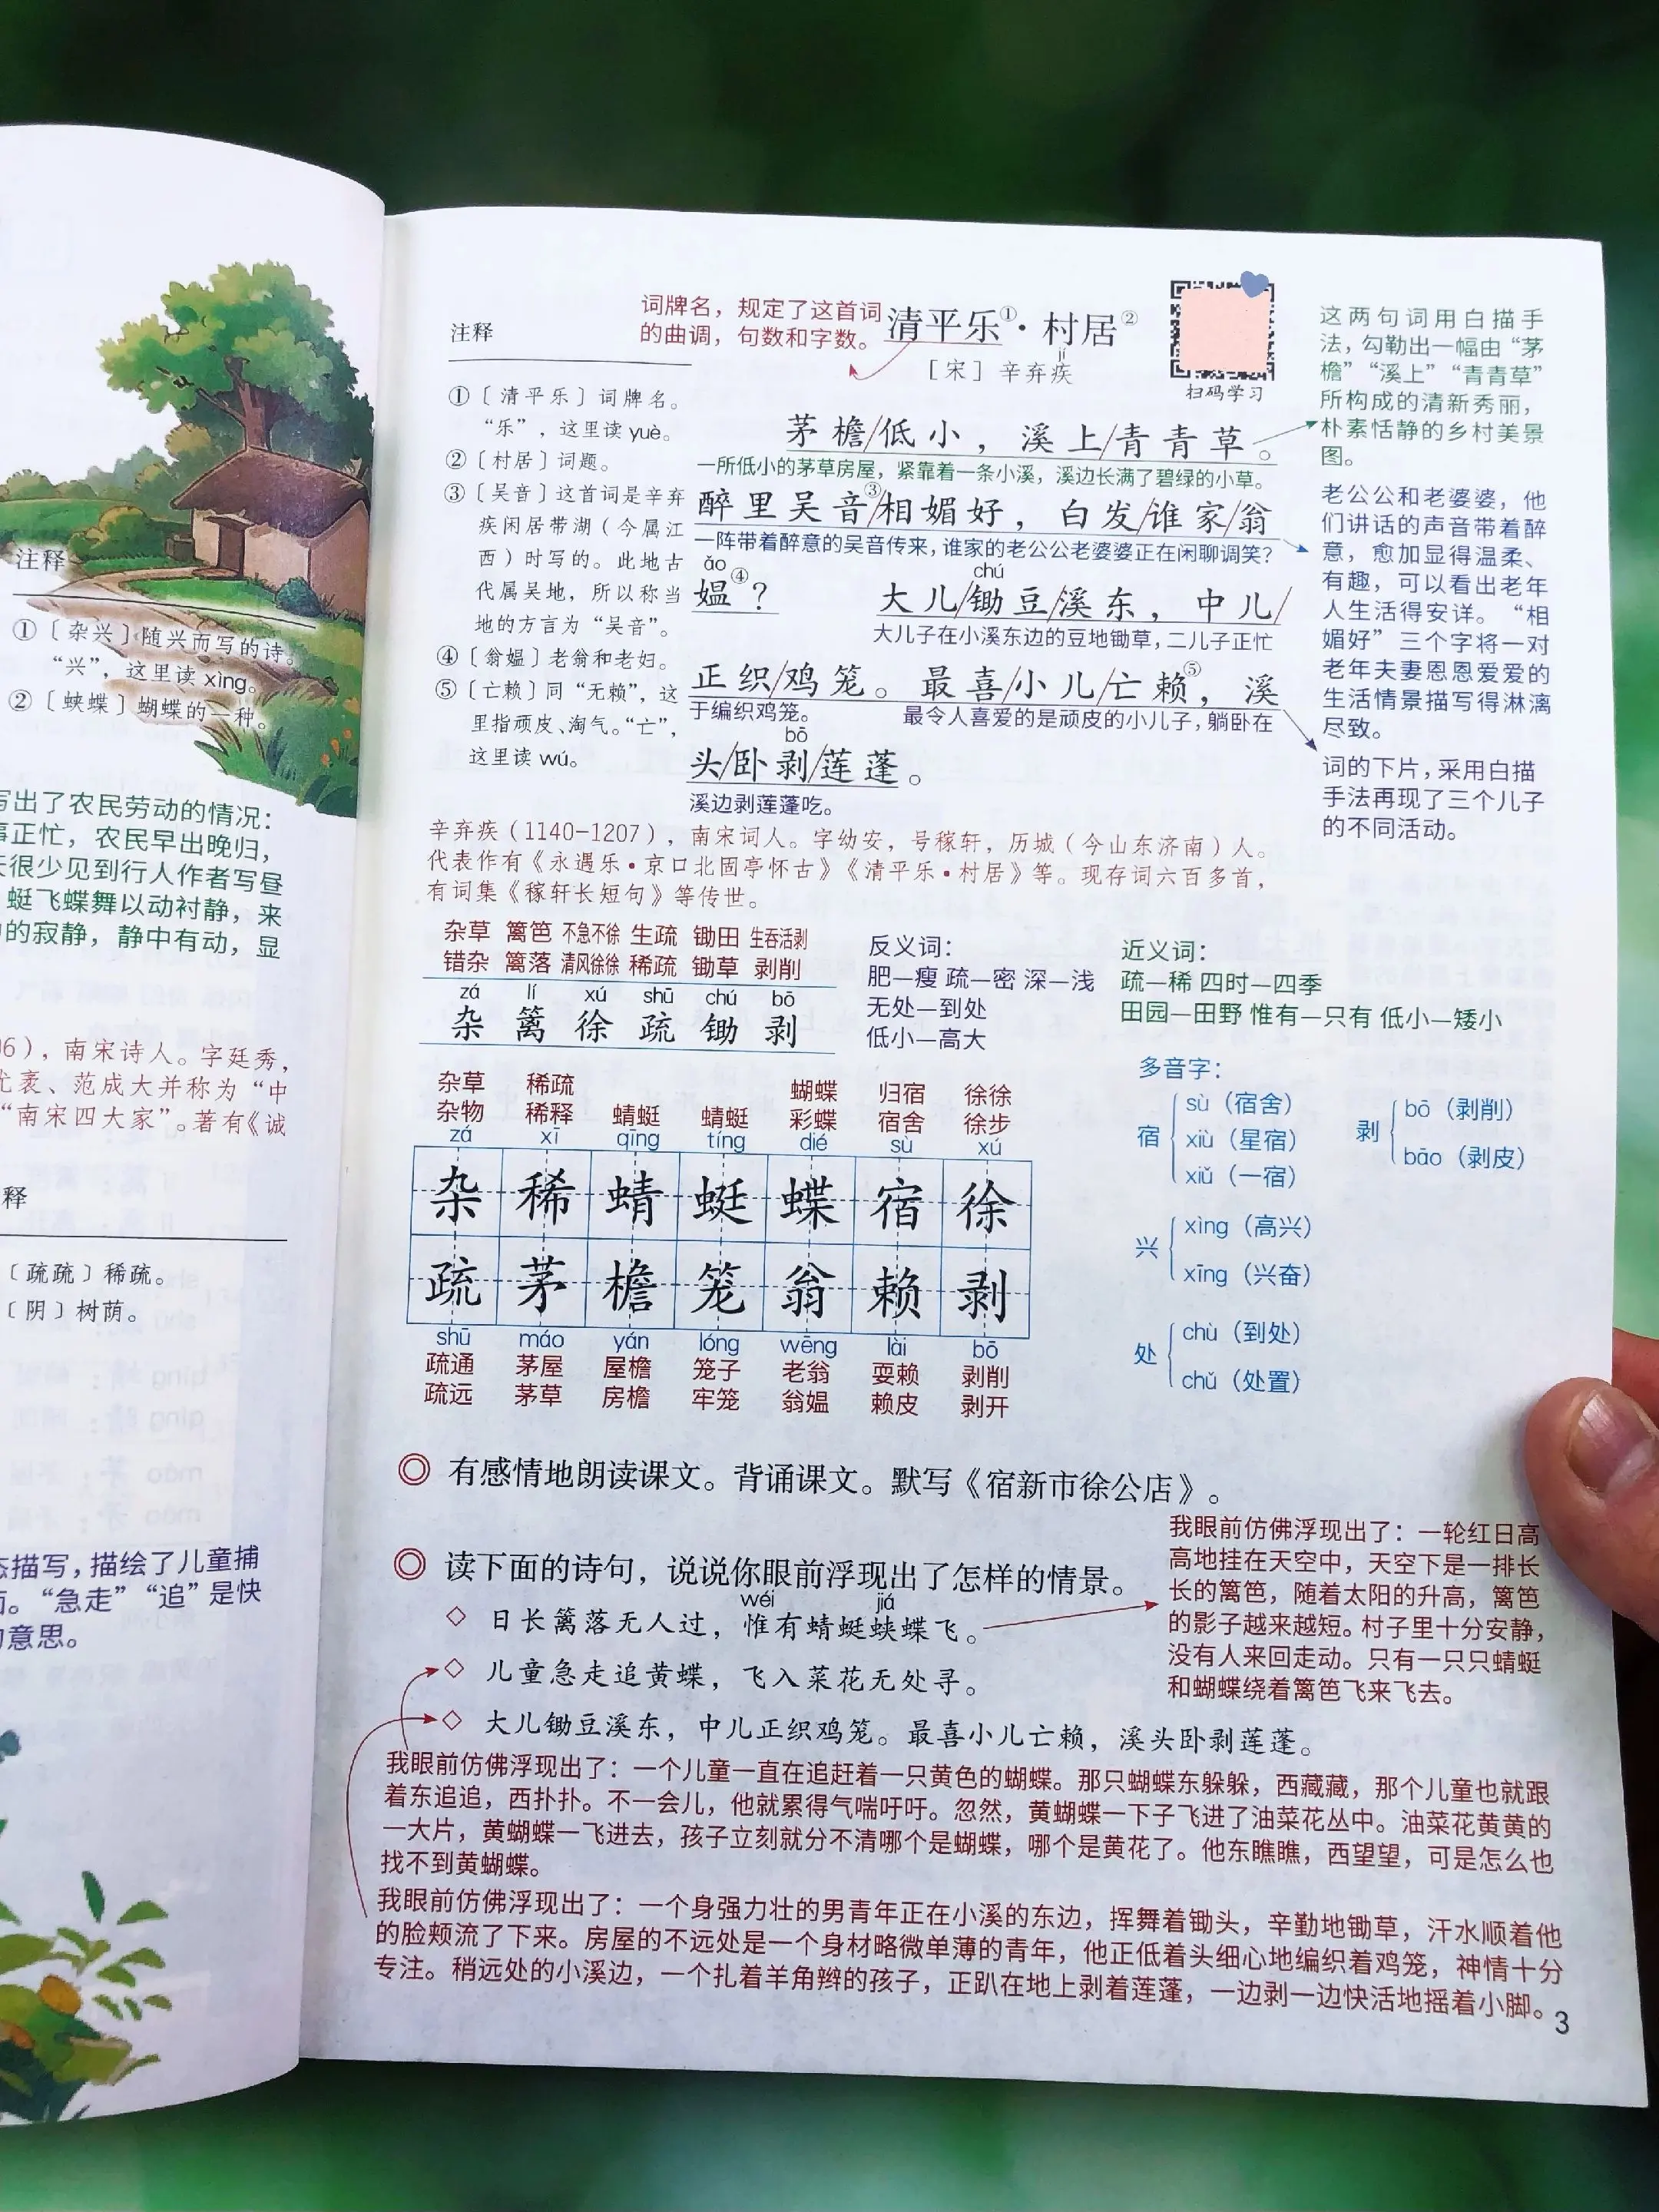 注释
①〔杂兴〕随兴而写的诗。
“兴”，这里读 xìng。
②〔蛱蝶〕蝴蝶的一种。
写出了农民劳动的情况：
事正忙，农民早出晚归，
天很少见到行人作者写昼
蜓飞蝶舞以动衬静，来
的寂静，静中有动，显
06），南宋诗人。字廷秀，
尤袤、范成大并称为“中
“南宋四大家”。著有《诚
释
〔疏疏〕稀疏。
〔阴〕树荫。
态描写，描绘了儿童捕
面。“急走”“追”是快
的意思。
注释
①〔清平乐〕词牌名。
“乐”，这里读 yuè。
②〔村居〕词题。
③〔吴音〕这首词是辛弃
疾闲居带湖（今属江
西）时写的。此地古
代属吴地，所以称当
地的方言为“吴音”。
④〔翁媪〕老翁和老妇。
⑤〔亡赖〕同“无赖”，这
里指顽皮、淘气。“亡”，
这里读 wú。
词牌名，规定了这首词
的曲调，句数和字数。
清平乐①·村居②
jí
［宋］辛弃疾
扫码学习
茅檐/低小，溪上/青青草。
一所低小的茅草房屋，紧靠着一条小溪，溪边长满了碧绿的小草。
醉里吴音③/相媚好，白发/谁家/翁
一阵带着醉意的吴音传来，谁家的老公公老婆婆正在闲聊调笑？
ǎo chú
媪④？ 大儿/锄豆/溪东，中儿/
大儿子在小溪东边的豆地锄草，二儿子正忙
正织/鸡笼。最喜/小儿/亡赖⑤，溪
于编织鸡笼。 最令人喜爱的是顽皮的小儿子，躺卧在
bō
头/卧剥/莲蓬。
溪边剥莲蓬吃。
这两句词用白描手
法，勾勒出一幅由“茅
檐”“溪上”“青青草”
所构成的清新秀丽，
朴素恬静的乡村美景
图。
老公公和老婆婆，他
们讲话的声音带着醉
意，愈加显得温柔、
有趣，可以看出老年
人生活得安详。“相
媚好”三个字将一对
老年夫妻恩恩爱爱的
生活情景描写得淋漓
尽致。
词的下片，采用白描
手法再现了三个儿子
的不同活动。
辛弃疾（1140-1207），南宋词人。字幼安，号稼轩，历城（今山东济南）人。
代表作有《永遇乐·京口北固亭怀古》《清平乐·村居》等。现存词六百多首，
有词集《稼轩长短句》等传世。
杂草 篱笆 不急不徐 生疏 锄田 生吞活剥
错杂 篱落 清风徐徐 稀疏 锄草 剥削
zá lí xú shū chú bō
杂 篱 徐 疏 锄 剥
反义词：
肥—瘦 疏—密 深—浅
无处—到处
低小—高大
近义词：
疏—稀 四时—四季
田园—田野 惟有—只有 低小—矮小
杂草 稀疏 蝴蝶 归宿 徐徐
杂物 稀释 蜻蜓 蜻蜓 彩蝶 宿舍 徐步
zá xī qīng tíng dié sù xú
杂 稀 蜻 蜓 蝶 宿 徐
疏 茅 檐 笼 翁 赖 剥
shū máo yán lóng wēng lài bō
疏通 茅屋 屋檐 笼子 老翁 耍赖 剥削
疏远 茅草 房檐 牢笼 翁媪 赖皮 剥开
多音字：
宿 sù（宿舍）
xiù（星宿）
xiǔ（一宿）
剥 bō（剥削）
bāo（剥皮）
兴 xìng（高兴）
xīng（兴奋）
处 chù（到处）
chǔ（处置）
◎ 有感情地朗读课文。背诵课文。默写《宿新市徐公店》。
◎ 读下面的诗句，说说你眼前浮现出了怎样的情景。
wéi jiá
◇ 日长篱落无人过，惟有蜻蜓蛱蝶飞。
◇ 儿童急走追黄蝶，飞入菜花无处寻。
◇ 大儿锄豆溪东，中儿正织鸡笼。最喜小儿亡赖，溪头卧剥莲蓬。
我眼前仿佛浮现出了：一轮红日高
高地挂在天空中，天空下是一排长
长的篱笆，随着太阳的升高，篱笆
的影子越来越短。村子里十分安静，
没有人来回走动。只有一只只蜻蜓
和蝴蝶绕着篱笆飞来飞去。
我眼前仿佛浮现出了：一个儿童一直在追赶着一只黄色的蝴蝶。那只蝴蝶东躲躲，西藏藏，那个儿童也就跟
着东追追，西扑扑。不一会儿，他就累得气喘吁吁。忽然，黄蝴蝶一下子飞进了油菜花丛中。油菜花黄黄的
一大片，黄蝴蝶一飞进去，孩子立刻就分不清哪个是蝴蝶，哪个是黄花了。他东瞧瞧，西望望，可是怎么也
找不到黄蝴蝶。
我眼前仿佛浮现出了：一个身强力壮的男青年正在小溪的东边，挥舞着锄头，辛勤地锄草，汗水顺着他
的脸颊流了下来。房屋的不远处是一个身材略微单薄的青年，他正低着头细心地编织着鸡笼，神情十分
专注。稍远处的小溪边，一个扎着羊角辫的孩子，正趴在地上剥着莲蓬，一边剥一边快活地摇着小脚。
3